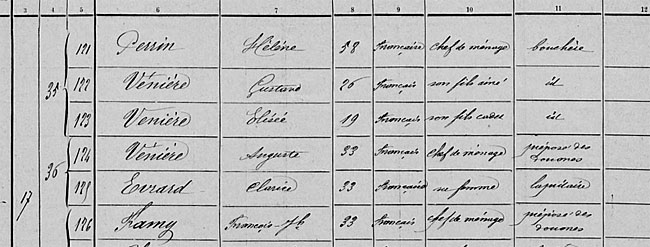 3 4 5 6 7 8 9 10 11 12
35 121 Perrin Hélène 58 Française chef de ménage bouchère
122 Venière Gustave 26 Français son fils ainé id
123 Venière Elisée 19 Français son fils cadet id
36 124 Venière Auguste 33 Français chef de ménage préposé des douanes
17 125 Evrard Clarice 33 Française sa femme lapidaire
126 Ramy François-Jh 33 Français chef de ménage préposé des douanes